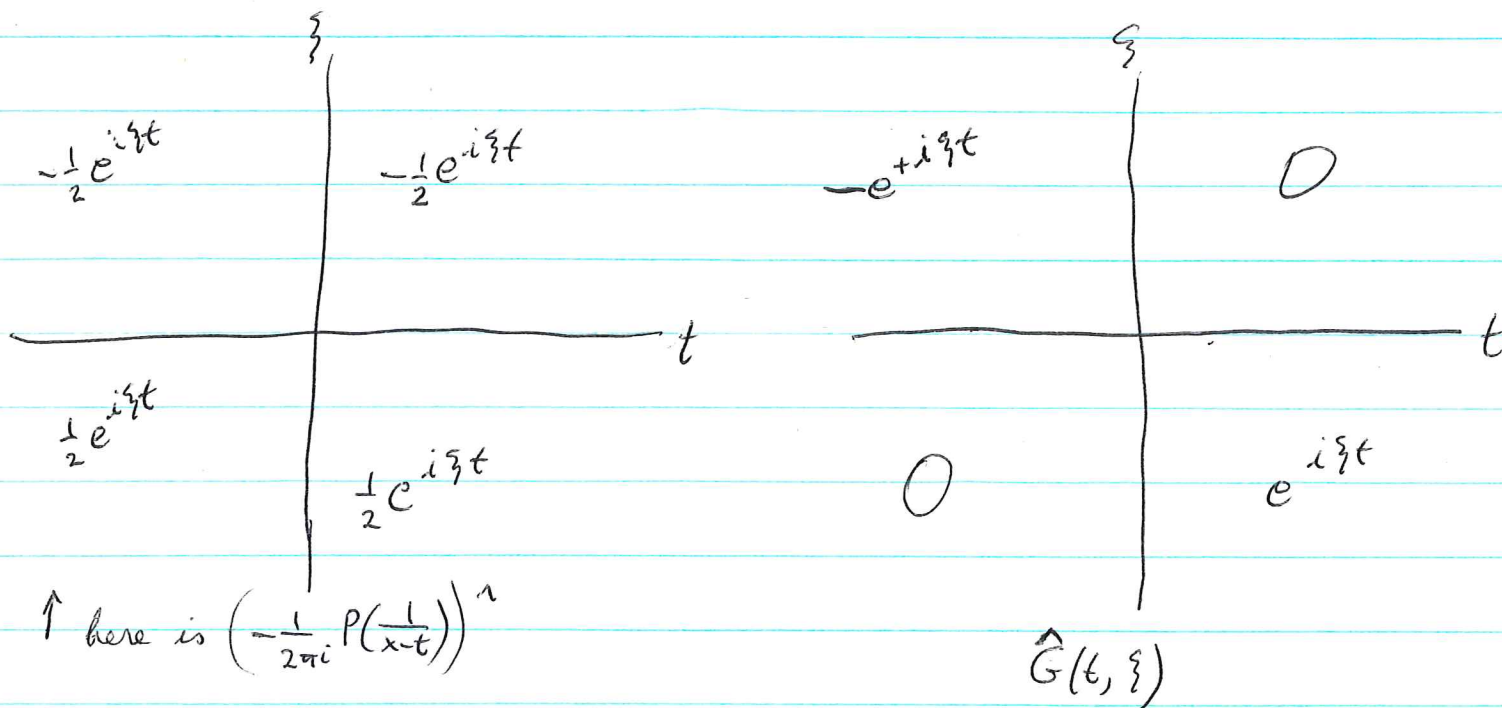 ξ
-½ e^{iξt} -½ e^{iξt}
t
½ e^{iξt} ½ e^{iξt}
↑ here is (-\frac{1}{2πi} P(\frac{1}{x-t}))^
ξ
-e^{+iξt} 0
t
0 e^{iξt}
Ĝ(t, ξ)